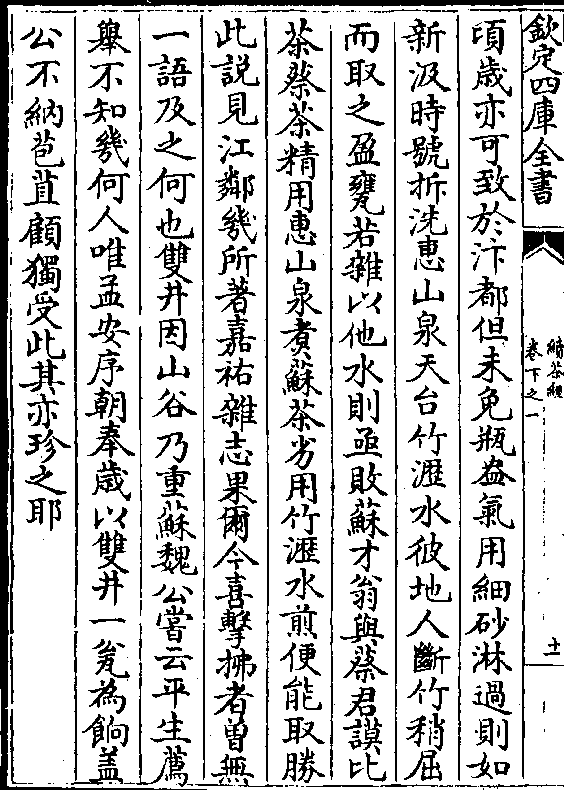 欽定四庫全書
續茶經
卷下之一
十一
頃歲亦可致於汴都但未免瓶盎氣用細砂淋過則如
新汲時號折洗惠山泉天台竹瀝水彼地人斷竹稍屈
而取之盈甕若雜以他水則亟敗蘇才翁與蔡君謨比
茶蔡茶精用惠山泉煮蘇茶劣用竹瀝水煎便能取勝
此說見江鄰幾所著嘉祐雜志果爾今喜擊拂者曾無
一語及之何也雙井因山谷乃重蘇魏公嘗云平生薦
舉不知幾何人唯孟安序朝奉歲以雙井一瓮為餉蓋
公不納苞苴顧獨受此其亦珍之耶